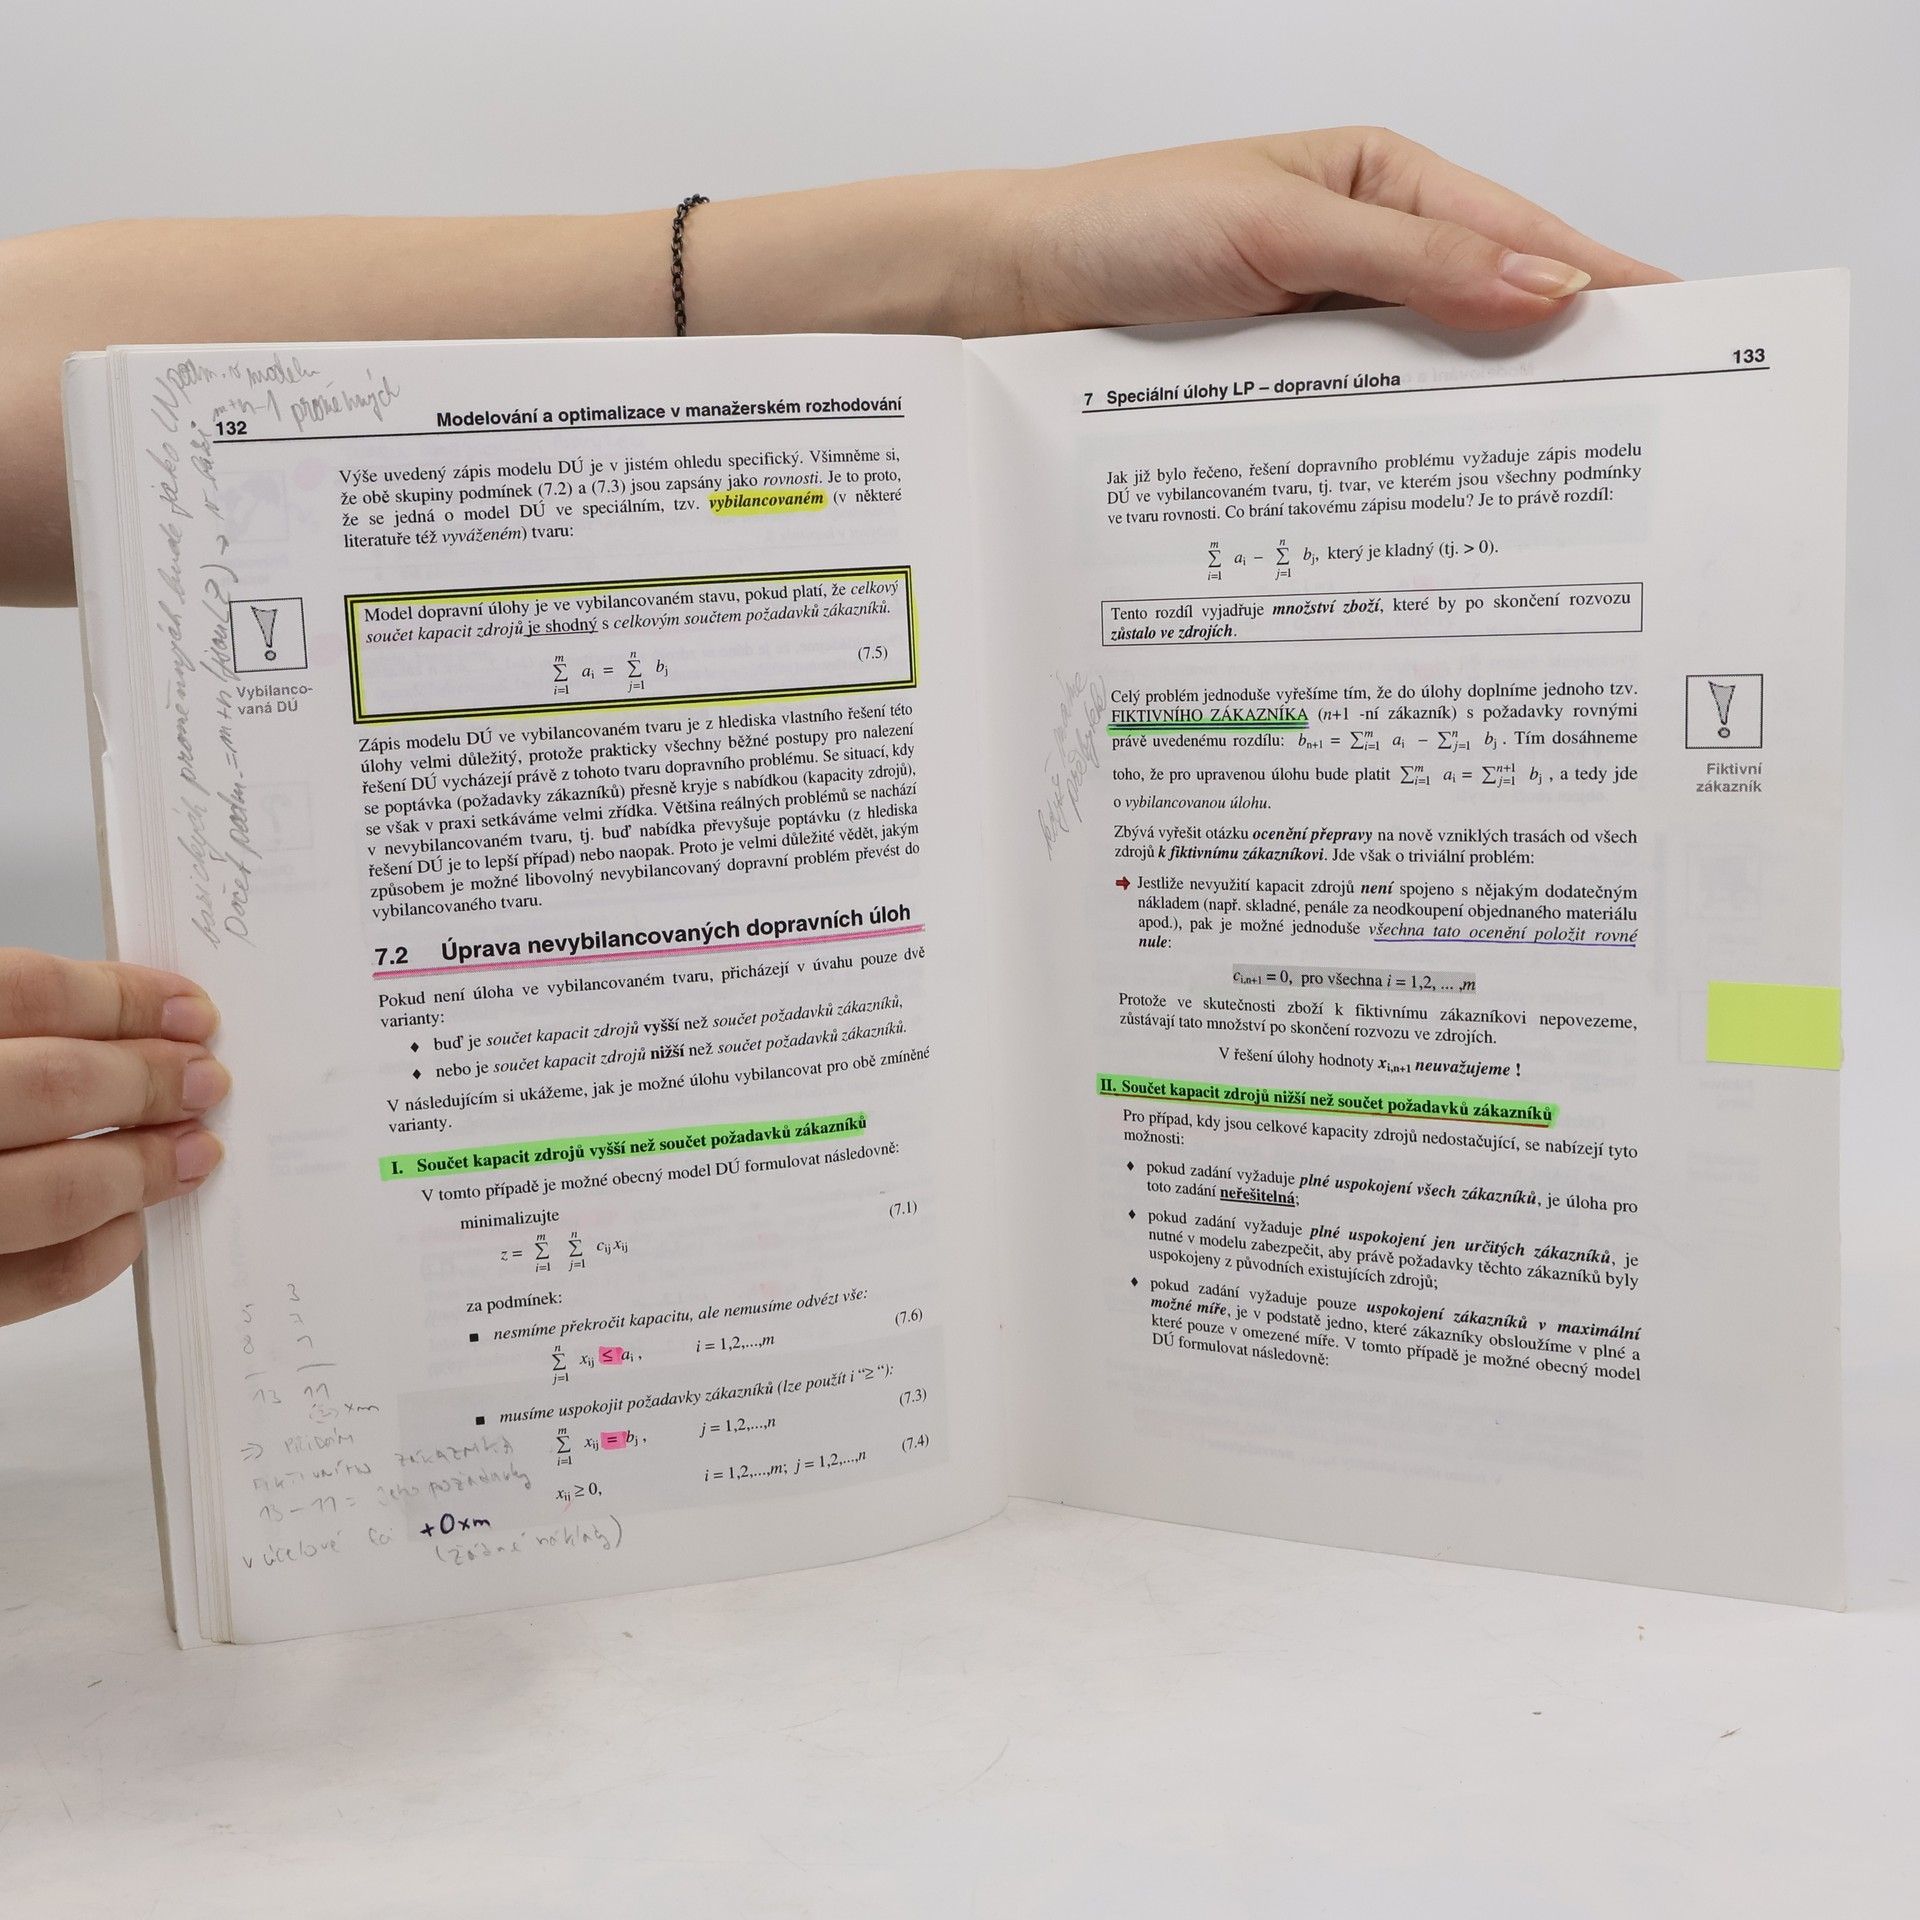 132
Modelování a optimalizace v manažerském rozhodování
Výše uvedený zápis modelu DÚ je v jistém ohledu specifický. Všimněme si,
že obě skupiny podmínek (7.2) a (7.3) jsou zapsány jako rovnosti. Je to proto,
že se jedná o model DÚ ve speciálním, tzv. vybilancovaném (v některé
literatuře též vyváženém) tvaru:
Model dopravní úlohy je ve vybilancovaném stavu, pokud platí, že celkový
součet kapacit zdrojů je shodný s celkovým součtem požadavků zákazníků.
∑_{i=1}^{m} a_i = ∑_{j=1}^{n} b_j (7.5)
Vybilanco-
vaná DÚ
Zápis modelu DÚ ve vybilancovaném tvaru je z hlediska vlastního řešení této
úlohy velmi důležitý, protože prakticky všechny běžné postupy pro nalezení
řešení DÚ vycházejí právě z tohoto tvaru dopravního problému. Se situací, kdy
se poptávka (požadavky zákazníků) přesně kryje s nabídkou (kapacity zdrojů),
se však v praxi setkáváme velmi zřídka. Většina reálných problémů se nachází
v nevybilancovaném tvaru, tj. buď nabídka převyšuje poptávku (z hlediska
řešení DÚ je to lepší případ) nebo naopak. Proto je velmi důležité vědět, jakým
způsobem je možné libovolný nevybilancovaný dopravní problém převést do
vybilancovaného tvaru.
7.2 Úprava nevybilancovaných dopravních úloh
Pokud není úloha ve vybilancovaném tvaru, přicházejí v úvahu pouze dvě
varianty:
♦ buď je součet kapacit zdrojů vyšší než součet požadavků zákazníků,
♦ nebo je součet kapacit zdrojů nižší než součet požadavků zákazníků.
V následujícím si ukážeme, jak je možné úlohu vybilancovat pro obě zmíněné
varianty.
I. Součet kapacit zdrojů vyšší než součet požadavků zákazníků
V tomto případě je možné obecný model DÚ formulovat následovně:
minimalizujte (7.1)
z = ∑_{i=1}^{m} ∑_{j=1}^{n} c_{ij} x_{ij}
za podmínek:
■ nesmíme překročit kapacitu, ale nemusíme odvézt vše:
∑_{j=1}^{n} x_{ij} ≤ a_i , i = 1,2,...,m (7.6)
■ musíme uspokojit požadavky zákazníků (lze použít i “≥ “):
∑_{i=1}^{m} x_{ij} = b_j , j = 1,2,...,n (7.3)
x_{ij} ≥ 0, i = 1,2,...,m; j = 1,2,...,n (7.4)
13 11
13 - 11 = jeho požadavky
v účelové +0xm
(žádné náklady)
7 Speciální úlohy LP – dopravní úloha
133
Jak již bylo řečeno, řešení dopravního problému vyžaduje zápis modelu
DÚ ve vybilancovaném tvaru, tj. tvar, ve kterém jsou všechny podmínky
ve tvaru rovnosti. Co brání takovému zápisu modelu? Je to právě rozdíl:
∑_{i=1}^{m} a_i – ∑_{j=1}^{n} b_j, který je kladný (tj. > 0).
Tento rozdíl vyjadřuje množství zboží, které by po skončení rozvozu
zůstalo ve zdrojích.
Celý problém jednoduše vyřešíme tím, že do úlohy doplníme jednoho tzv.
FIKTIVNÍHO ZÁKAZNÍKA (n+1 -ní zákazník) s požadavky rovnými
právě uvedenému rozdílu: b_{n+1} = ∑_{i=1}^{m} a_i – ∑_{j=1}^{n} b_j . Tím dosáhneme
toho, že pro upravenou úlohu bude platit ∑_{i=1}^{m} a_i = ∑_{j=1}^{n+1} b_j , a tedy jde
o vybilancovanou úlohu.
Fiktivní
zákazník
Zbývá vyřešit otázku ocenění přepravy na nově vzniklých trasách od všech
zdrojů k fiktivnímu zákazníkovi. Jde však o triviální problém:
➔ Jestliže nevyužití kapacit zdrojů není spojeno s nějakým dodatečným
nákladem (např. skladné, penále za neodkoupení objednaného materiálu
apod.), pak je možné jednoduše všechna tato ocenění položit rovné
nule:
c_{i,n+1} = 0, pro všechna i = 1,2, ... ,m
Protože ve skutečnosti zboží k fiktivnímu zákazníkovi nepovezeme,
zůstávají tato množství po skončení rozvozu ve zdrojích.
V řešení úlohy hodnoty x_{i,n+1} neuvažujeme !
II. Součet kapacit zdrojů nižší než součet požadavků zákazníků
Pro případ, kdy jsou celkové kapacity zdrojů nedostačující, se nabízejí tyto
možnosti:
♦ pokud zadání vyžaduje plné uspokojení všech zákazníků, je úloha pro
toto zadání neřešitelná;
♦ pokud zadání vyžaduje plné uspokojení jen určitých zákazníků, je
nutné v modelu zabezpečit, aby právě požadavky těchto zákazníků byly
uspokojeny z původních existujících zdrojů;
♦ pokud zadání vyžaduje pouze uspokojení zákazníků v maximální
možné míře, je v podstatě jedno, které zákazníky obsloužíme v plné a
které pouze v omezené míře. V tomto případě je možné obecný model
DÚ formulovat následovně: